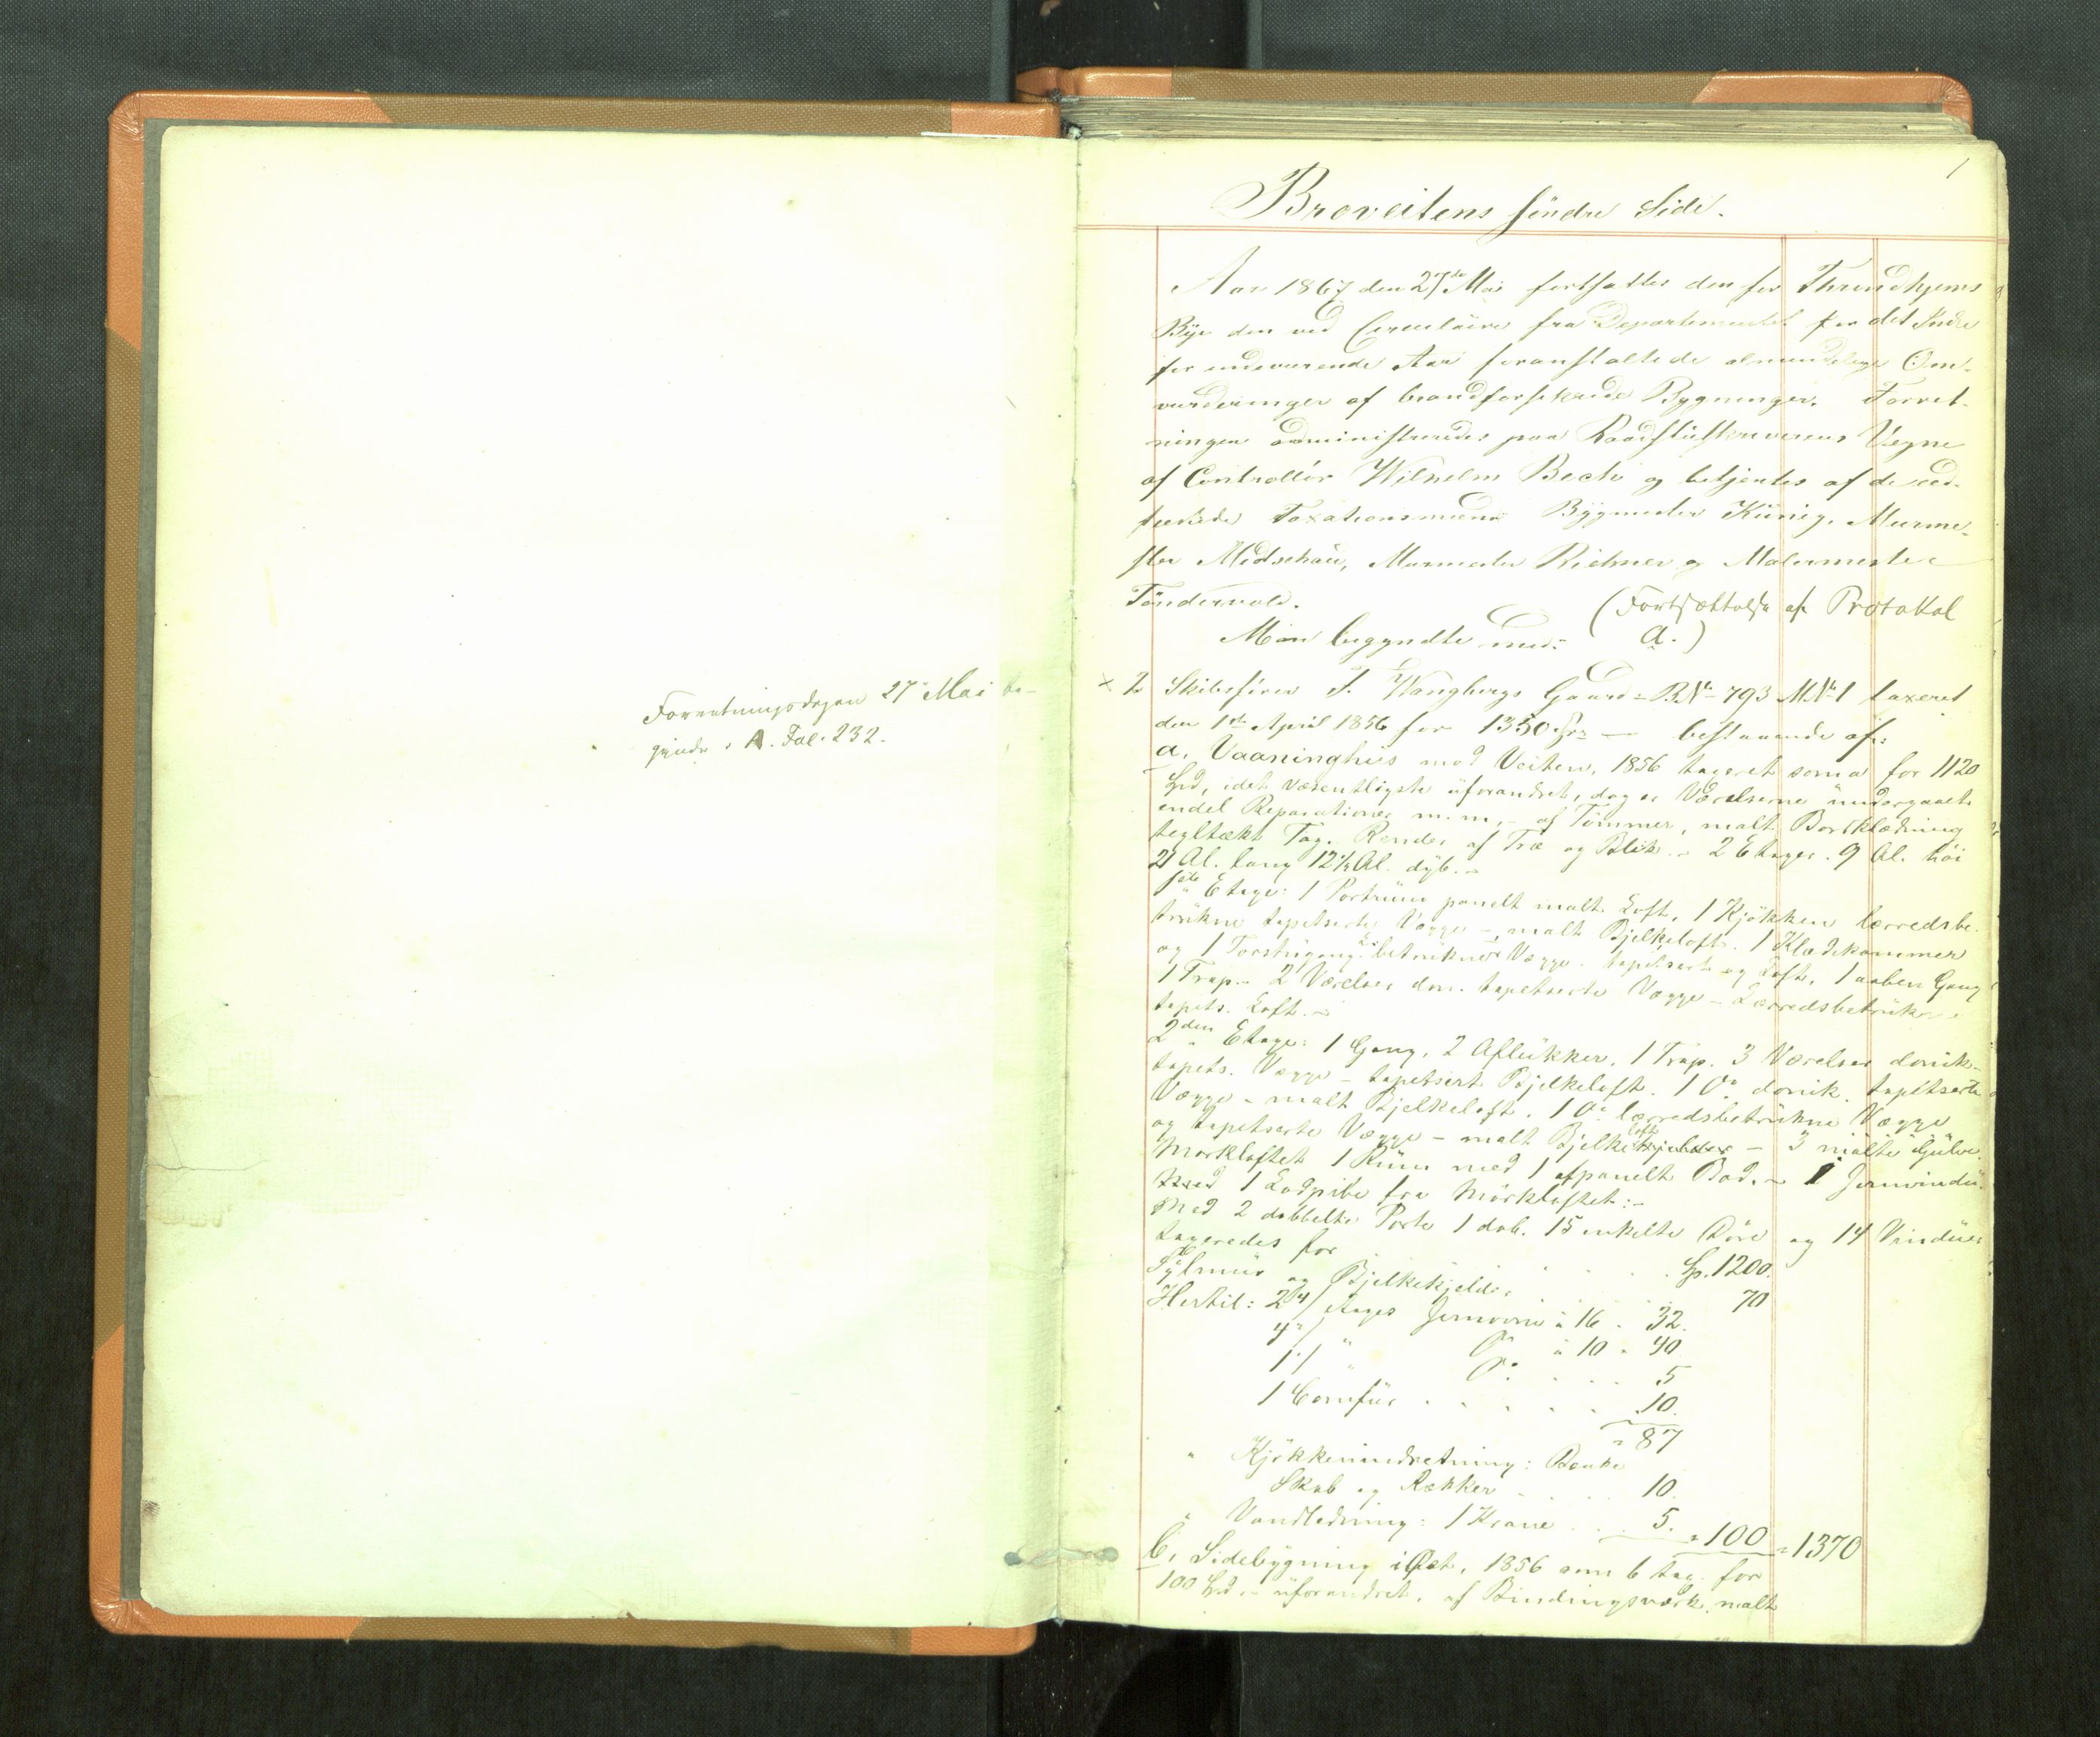 Forretningsdagen 27de Mai be-
gynder i A. Fol. 232.
1
Broveitens søndre Side.
Aar 1867 den 27de Mai fortsattes den for Throndhjems
Bye den ved Circulaire fra Departementet for det Indre
for indeværende Aar foranstaltede almindelige Om-
vurderinger af brandforsikrede Bygninger. Forret-
ningen administreredes paa Raadstüskriverens Vegne
af Controllør Wilhelm Beck og betjentes af de eed-
fæstede Taxationsmænd Bÿgmester Künig, Murme-
ster Midschaü, Murmester Richner og Malermester
Tøndervold.
(Fortsættelse af Protokol
Man begyndte med:
A.)
× 2 Skibsfører J. Wangbergs Gaard = B.No 793 M.No 1 taxeret
den 1ste April 1856 for 1350 Spd — bestaaende af:
a, Vaaninghüs mod Veiten, 1856 taxeret som a for 1120
Spd, idet væsentligste üforandret, dog er Værelserne ündergaaet
endel Reparationer m.m, - af Tømmer, malt Bordklædning
tegltækt Tag. Render af Træ og Blik. - 2 Etager. 9 Al. høi
21 Al. lang 12½ Al. dÿb. -
1ste Etage: 1 Portrüm panelt malt Loft, 1 Kjøkken lærredsbe-
trükne tapetserte Vægge -, malt Bjelkeloft. 1 Klædekammer
og 1 Forstügang betrükne Vægge. tapetsert og Loft, 1 aaben Gang
1 Trap. - 2 Værelser do. tapetserte Vægge - Lærredsbetrükne
tapets. Loft. -
2den Etage: 1 Gang, 2 Aflükker, 1 Trap. 3 Værelser
tapets. Vægge - tapetsert Bjelkeloft. 1 do. tapetserte
Vægge - malt Bjelkeloft. 1 do. lærredsbetrükne Vægge
og tapetserte Vægge - malt Bjelkeloft - 3 malte Gülve.
Mørkloftet 1 Rüm med 1 afpanelt Bod. - 1 Jernvindü.
med 1 Lodpibe fra Mørkloftet: -
Med 2 dobbelte Porte 1 dob. 15 enkelte Døre og 14 Vindüer
taxeredes for . . . . Sp. 1200.
Sylmür og Bjelkekjelder . . . . 70
Hertil: 2 Etages Jernovne à 16 . 32.
4 " do à 10 " 40
1 " do . . . . 5
1 Comfür . . . . . 10.
" 87
" Kjøkkenindretning: Bænke
Skab og Rækker . . . 10.
" Vandledning: 1 Krane . . . 5. " 100 = 1370
b, Sidebÿgning i Øst, 1856 som b tax. for
100 Spd - üforandret, af Bindingsværk, malt